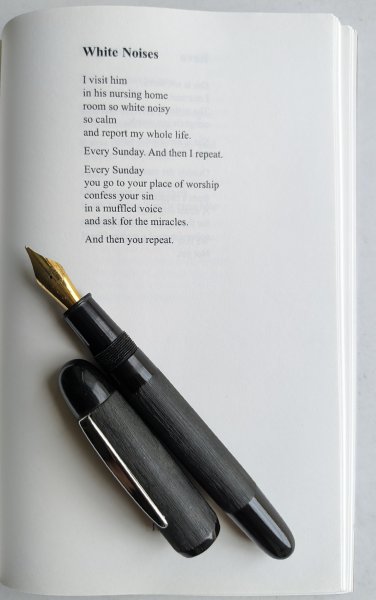 White Noises
I visit him
in his nursing home
room so white noisy
so calm
and report my whole life.
Every Sunday. And then I repeat.
Every Sunday
you go to your place of worship
confess your sin
in a muffled voice
and ask for the miracles.
And then you repeat.